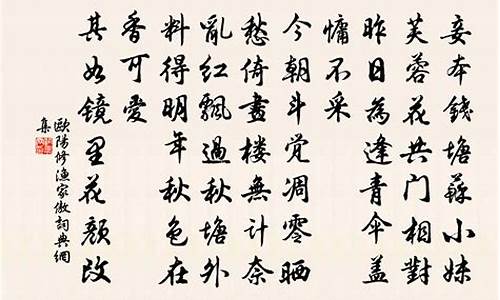 妾本錢塘蘇小妹
芙蓉花共門相對
昨日為逢青傘蓋
慵不采
今朝斗覺凋零㬠
愁倚畫樓無計奈
亂紅飄過秋塘外
料得明年秋色在
香可愛
其如鏡里花顏改
歐陽修漁家傲詞典網
集